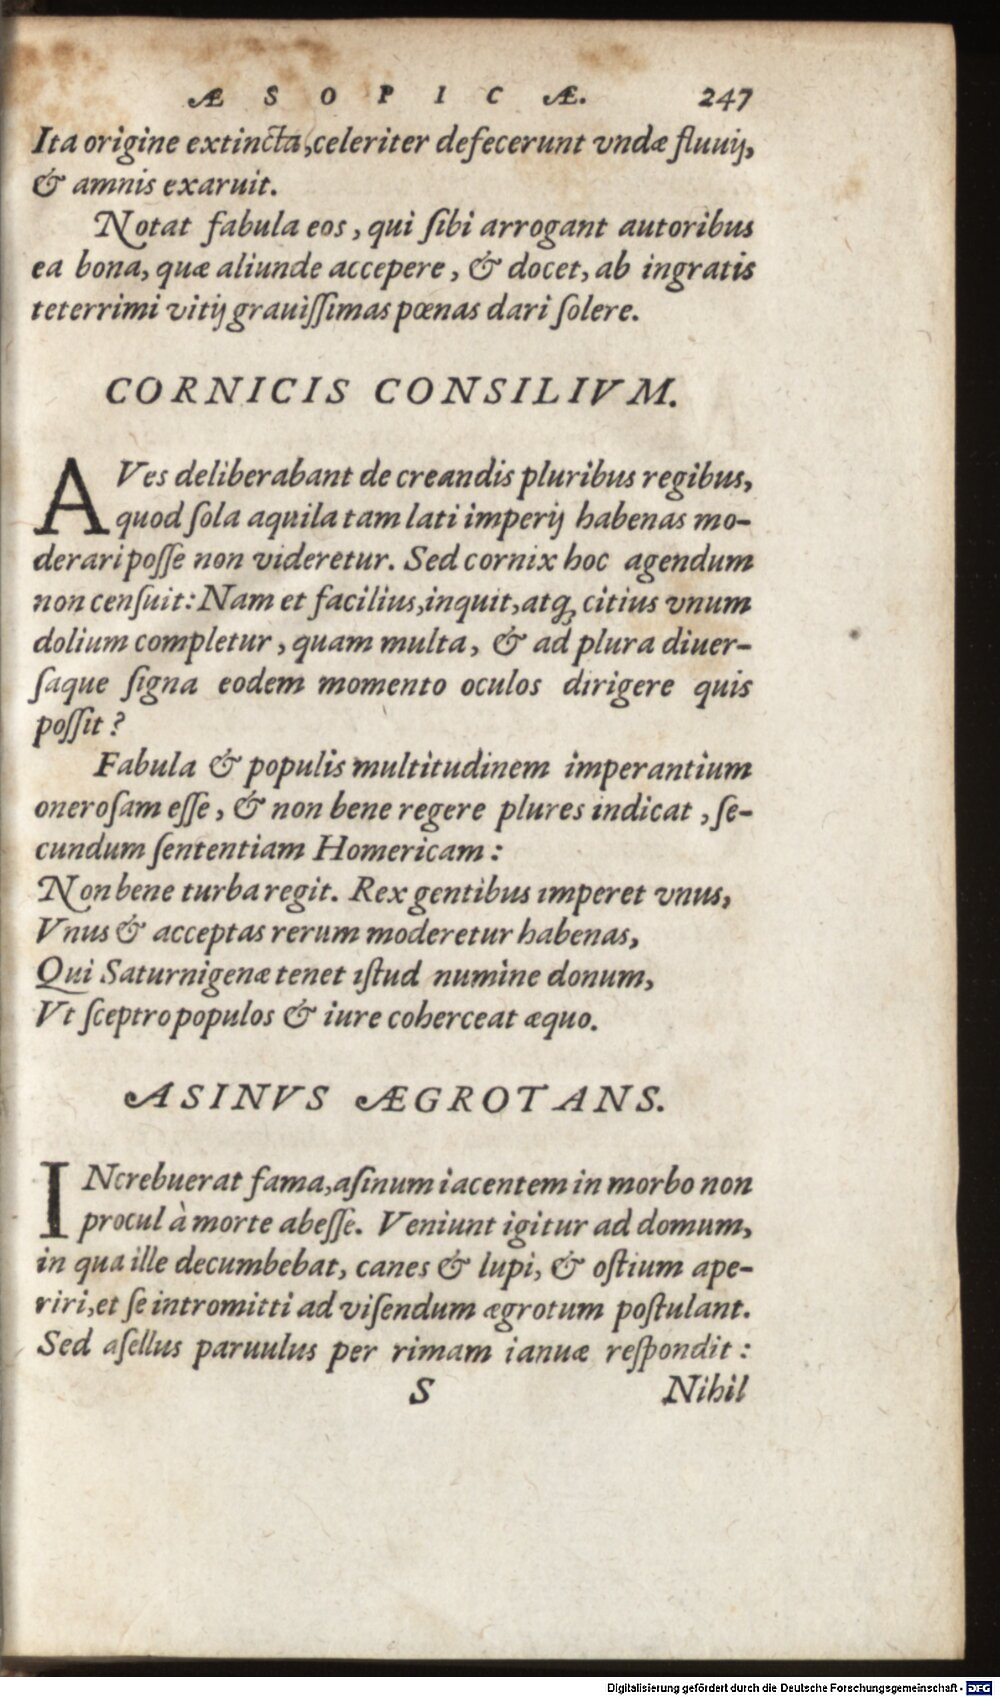 ÆSOPICÆ. 247
Ita origine extincta, celeriter defecerunt vndæ fluuij,
& amnis exaruit.
Notat fabula eos, qui ſibi arrogant autoribus
ea bona, quæ aliunde accepere, & docet, ab ingratis
teterrimi vitij grauiſſimas pœnas dari ſolere.
CORNICIS CONSILIVM.
AVes deliberabant de creandis pluribus regibus,
quod ſola aquila tam lati imperij habenas mo-
derari poſſe non videretur. Sed cornix hoc agendum
non cenſuit: Nam et facilius, inquit, atq; citius vnum
dolium completur, quam multa, & ad plura diuer-
ſaque ſigna eodem momento oculos dirigere quis
poſſit?
Fabula & populis multitudinem imperantium
oneroſam eſſe, & non bene regere plures indicat, ſe-
cundum ſententiam Homericam:
Non bene turba regit. Rex gentibus imperet vnus,
Vnus & acceptas rerum moderetur habenas,
Qui Saturnigenæ tenet iſtud numine donum,
Vt ſceptro populos & iure coherceat æquo.
ASINVS ÆGROTANS.
INcrebuerat fama, aſinum iacentem in morbo non
procul à morte abeſſe. Veniunt igitur ad domum,
in qua ille decumbebat, canes & lupi, & oſtium ape-
riri, et ſe intromitti ad viſendum ægrotum poſtulant.
Sed aſellus paruulus per rimam ianuæ reſpondit:
S Nihil
Digitalisierung gefördert durch die Deutsche Forschungsgemeinschaft - DFG